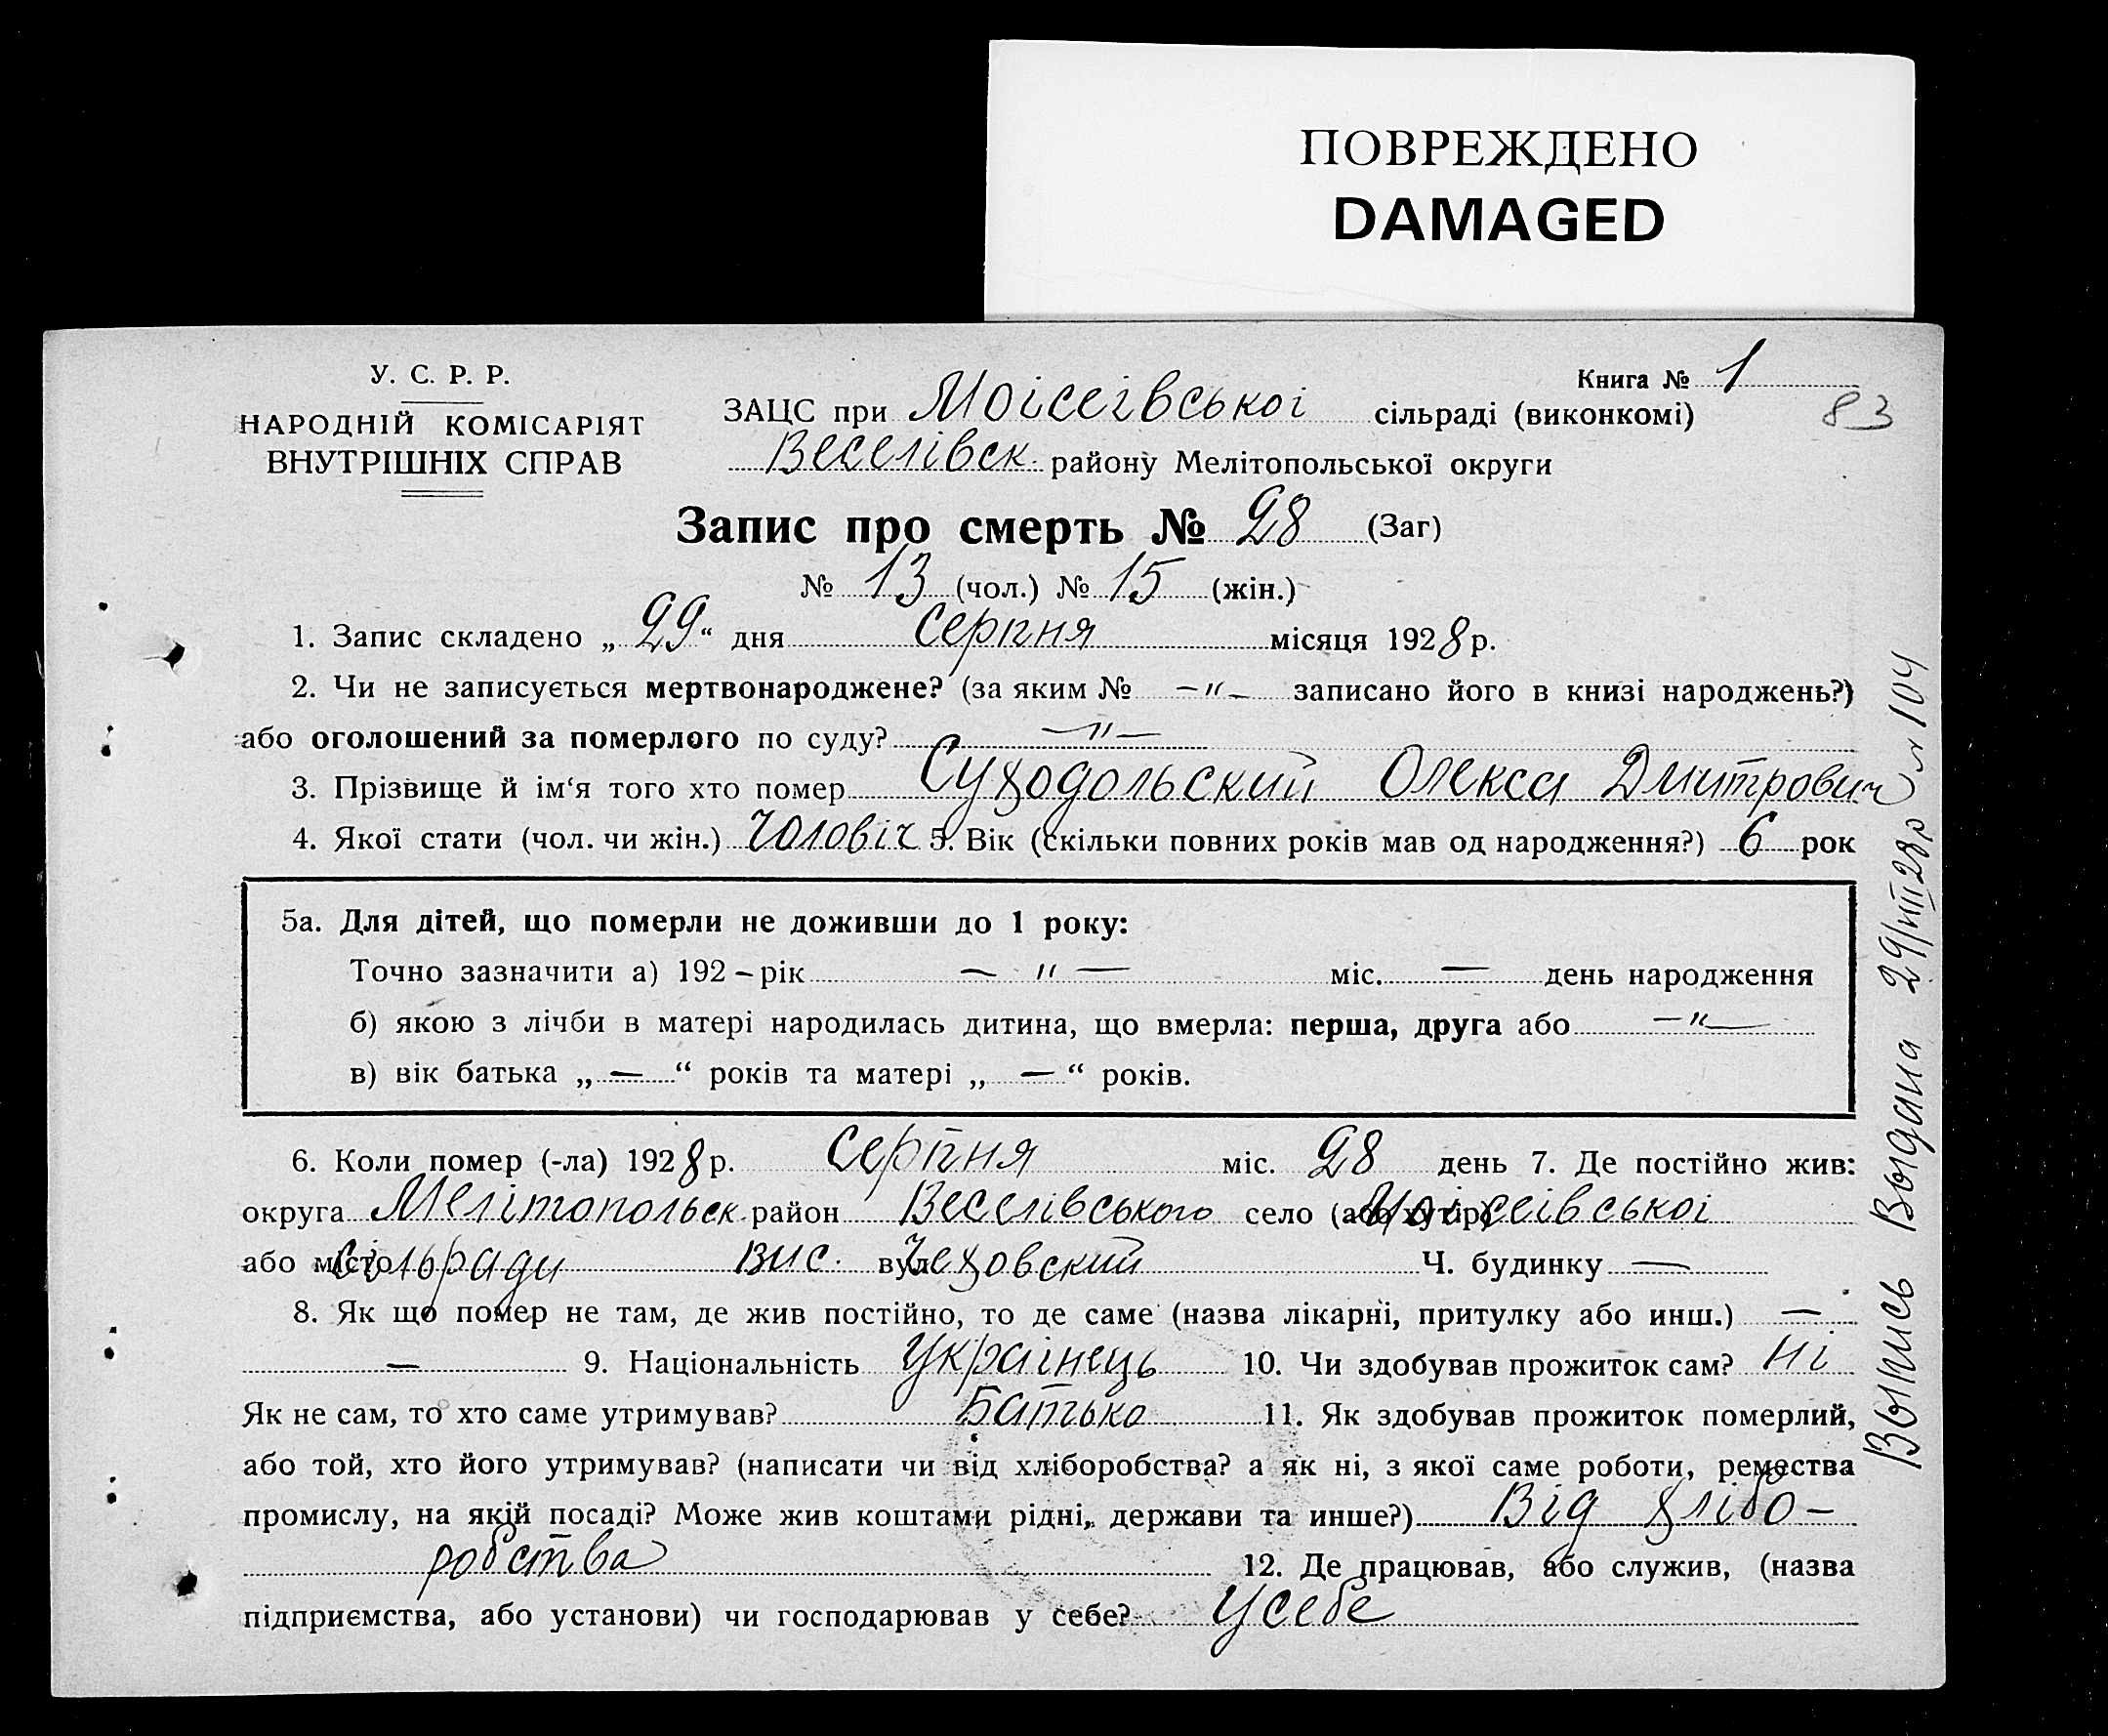 ПОВРЕЖДЕНО
DAMAGED
У. С. Р. Р.
НАРОДНІЙ КОМІСАРІЯТ
ВНУТРІШНІХ СПРАВ
Книга № 1
83
ЗАЦС при Моісеівської сільраді (виконкомі)
Веселівськ. району Мелітопольської округи
Запис про смерть № 28 (Заг)
№ 13 (чол.) № 15 (жін.)
1. Запис складено „29“ дня Серпня місяця 1928 р.
2. Чи не записується мертвонароджене? (за яким № —"— записано його в книзі народжень?)
або оголошений за померлого по суду? —"—
3. Прізвище й ім‘я того хто помер Суходольский Олекса Дмитрович
4. Якої стати (чол. чи жін.) Чоловіч 5. Вік (скільки повних років мав од народження?) 6 рок
5а. Для дітей, що померли не доживши до 1 року:
Точно зазначити а) 192 – рік — " — міс. — день народження
б) якою з лічби в матері народилась дитина, що вмерла: перша, друга або —"—
в) вік батька „—“ років та матері „—“ років.
6. Коли помер (-ла) 1928 р. Серпня міс. 28 день 7. Де постійно жив:
округа Мелітопольськ. район Веселівського село (або хутір) Моісеівської
або місто сільради вис. вул. Чеховский Ч. будинку —
8. Як що помер не там, де жив постійно, то де саме (назва лікарні, притулку або инш.) —
— 9. Національність Украінець 10. Чи здобував прожиток сам? Ні
Як не сам, то хто саме утримував? Батько 11. Як здобував прожиток померлий,
або той, хто його утримував? (написати чи від хліборобства? а як ні, з якої саме роботи, ремества
промислу, на якій посаді? Може жив коштами рідні, держави та инше?) Від хлібо-
робства 12. Де працював, або служив, (назва
підприємства, або установи) чи господарював у себе? У себе
Выпись Выдана 29/VIII 28 р № 104